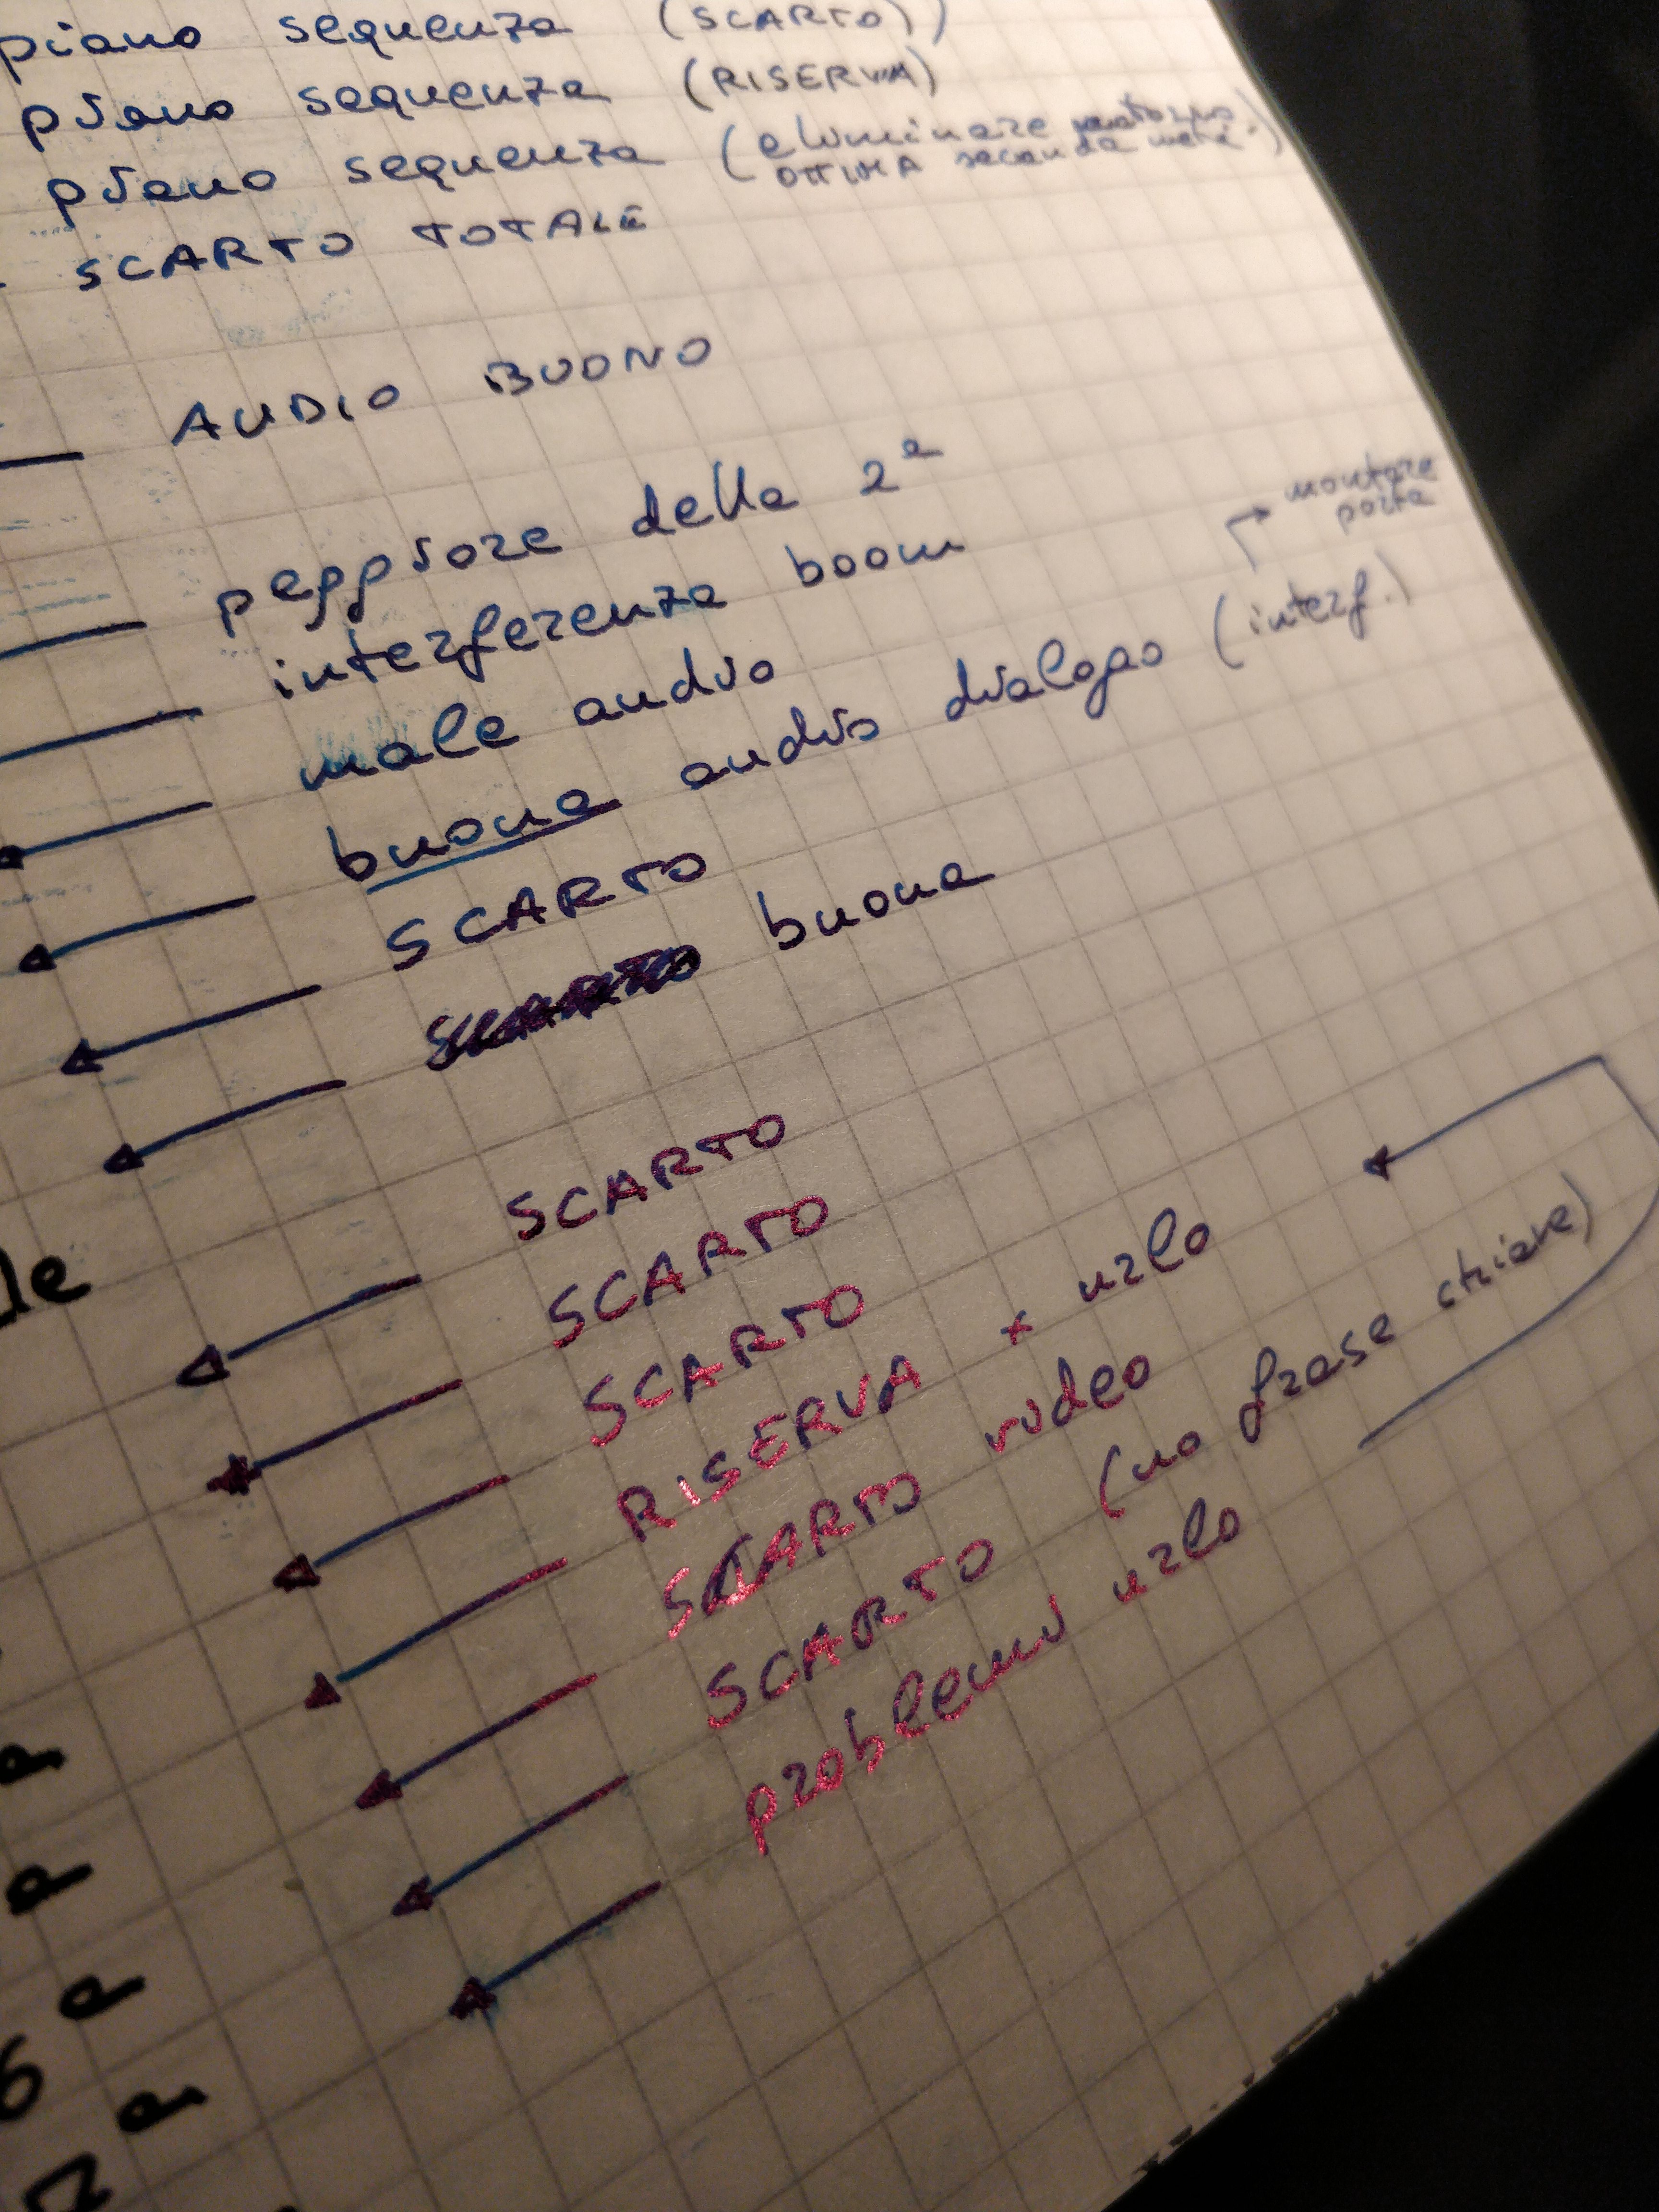 piano sequenza (SCARTO)
piano sequenza (RISERVA)
piano sequenza (eliminare
OTTIMA seconda metà)
SCARTO TOTALE
AUDIO BUONO
peggiore della 2ª
interferenza boom
montare
porta
male audio
buona audio dialogo (interf.)
SCARTO
buona
SCARTO
SCARTO
SCARTO
RISERVA x urlo
SCARTO video
SCARTO (no frase chiave)
problemi urlo